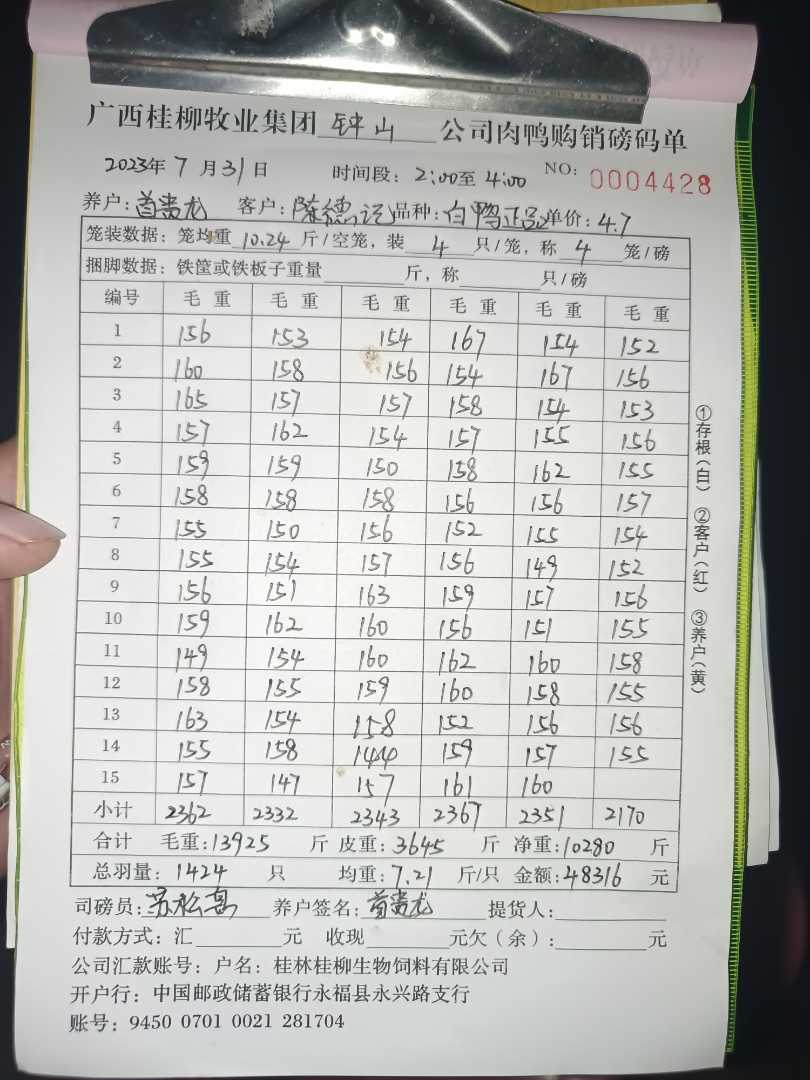 广西桂柳牧业集团 钟山 公司肉鸭购销磅码单
2023年 7 月 31 日 时间段: 2:00至 4:00 NO: 0004428
养户: 首贵龙 客户: 陈德记 品种: 白鸭正品 单价: 4.7
笼装数据: 笼均重 10.24 斤/空笼, 装 4 只/笼, 称 4 笼/磅
捆脚数据: 铁筐或铁板子重量 斤, 称 只/磅
编号 毛重 毛重 毛重 毛重 毛重 毛重
1 156 153 154 167 154 152
2 160 158 156 154 167 156
3 165 157 157 158 154 153
4 157 162 154 157 155 156
5 159 159 150 158 162 155
6 158 158 158 156 156 157
7 155 150 156 152 155 154
8 155 154 157 156 149 152
9 156 151 163 159 157 156
10 159 162 160 156 151 155
11 149 154 160 162 160 158
12 158 155 159 160 158 155
13 163 154 158 152 156 156
14 155 158 144 159 157 155
15 157 147 157 161 160
小计 2362 2332 2343 2367 2351 2170
合计 毛重: 13925 斤 皮重: 3645 斤 净重: 10280 斤
总羽量: 1424 只 均重: 7.21 斤/只 金额: 48316 元
司磅员: 养户签名: 首贵龙 提货人:
付款方式: 汇 元 收现 元欠(余): 元
公司汇款账号: 户名: 桂林桂柳生物饲料有限公司
开户行: 中国邮政储蓄银行永福县永兴路支行
账号: 9450 0701 0021 281704
①存根(白) ②客户(红) ③养户(黄)